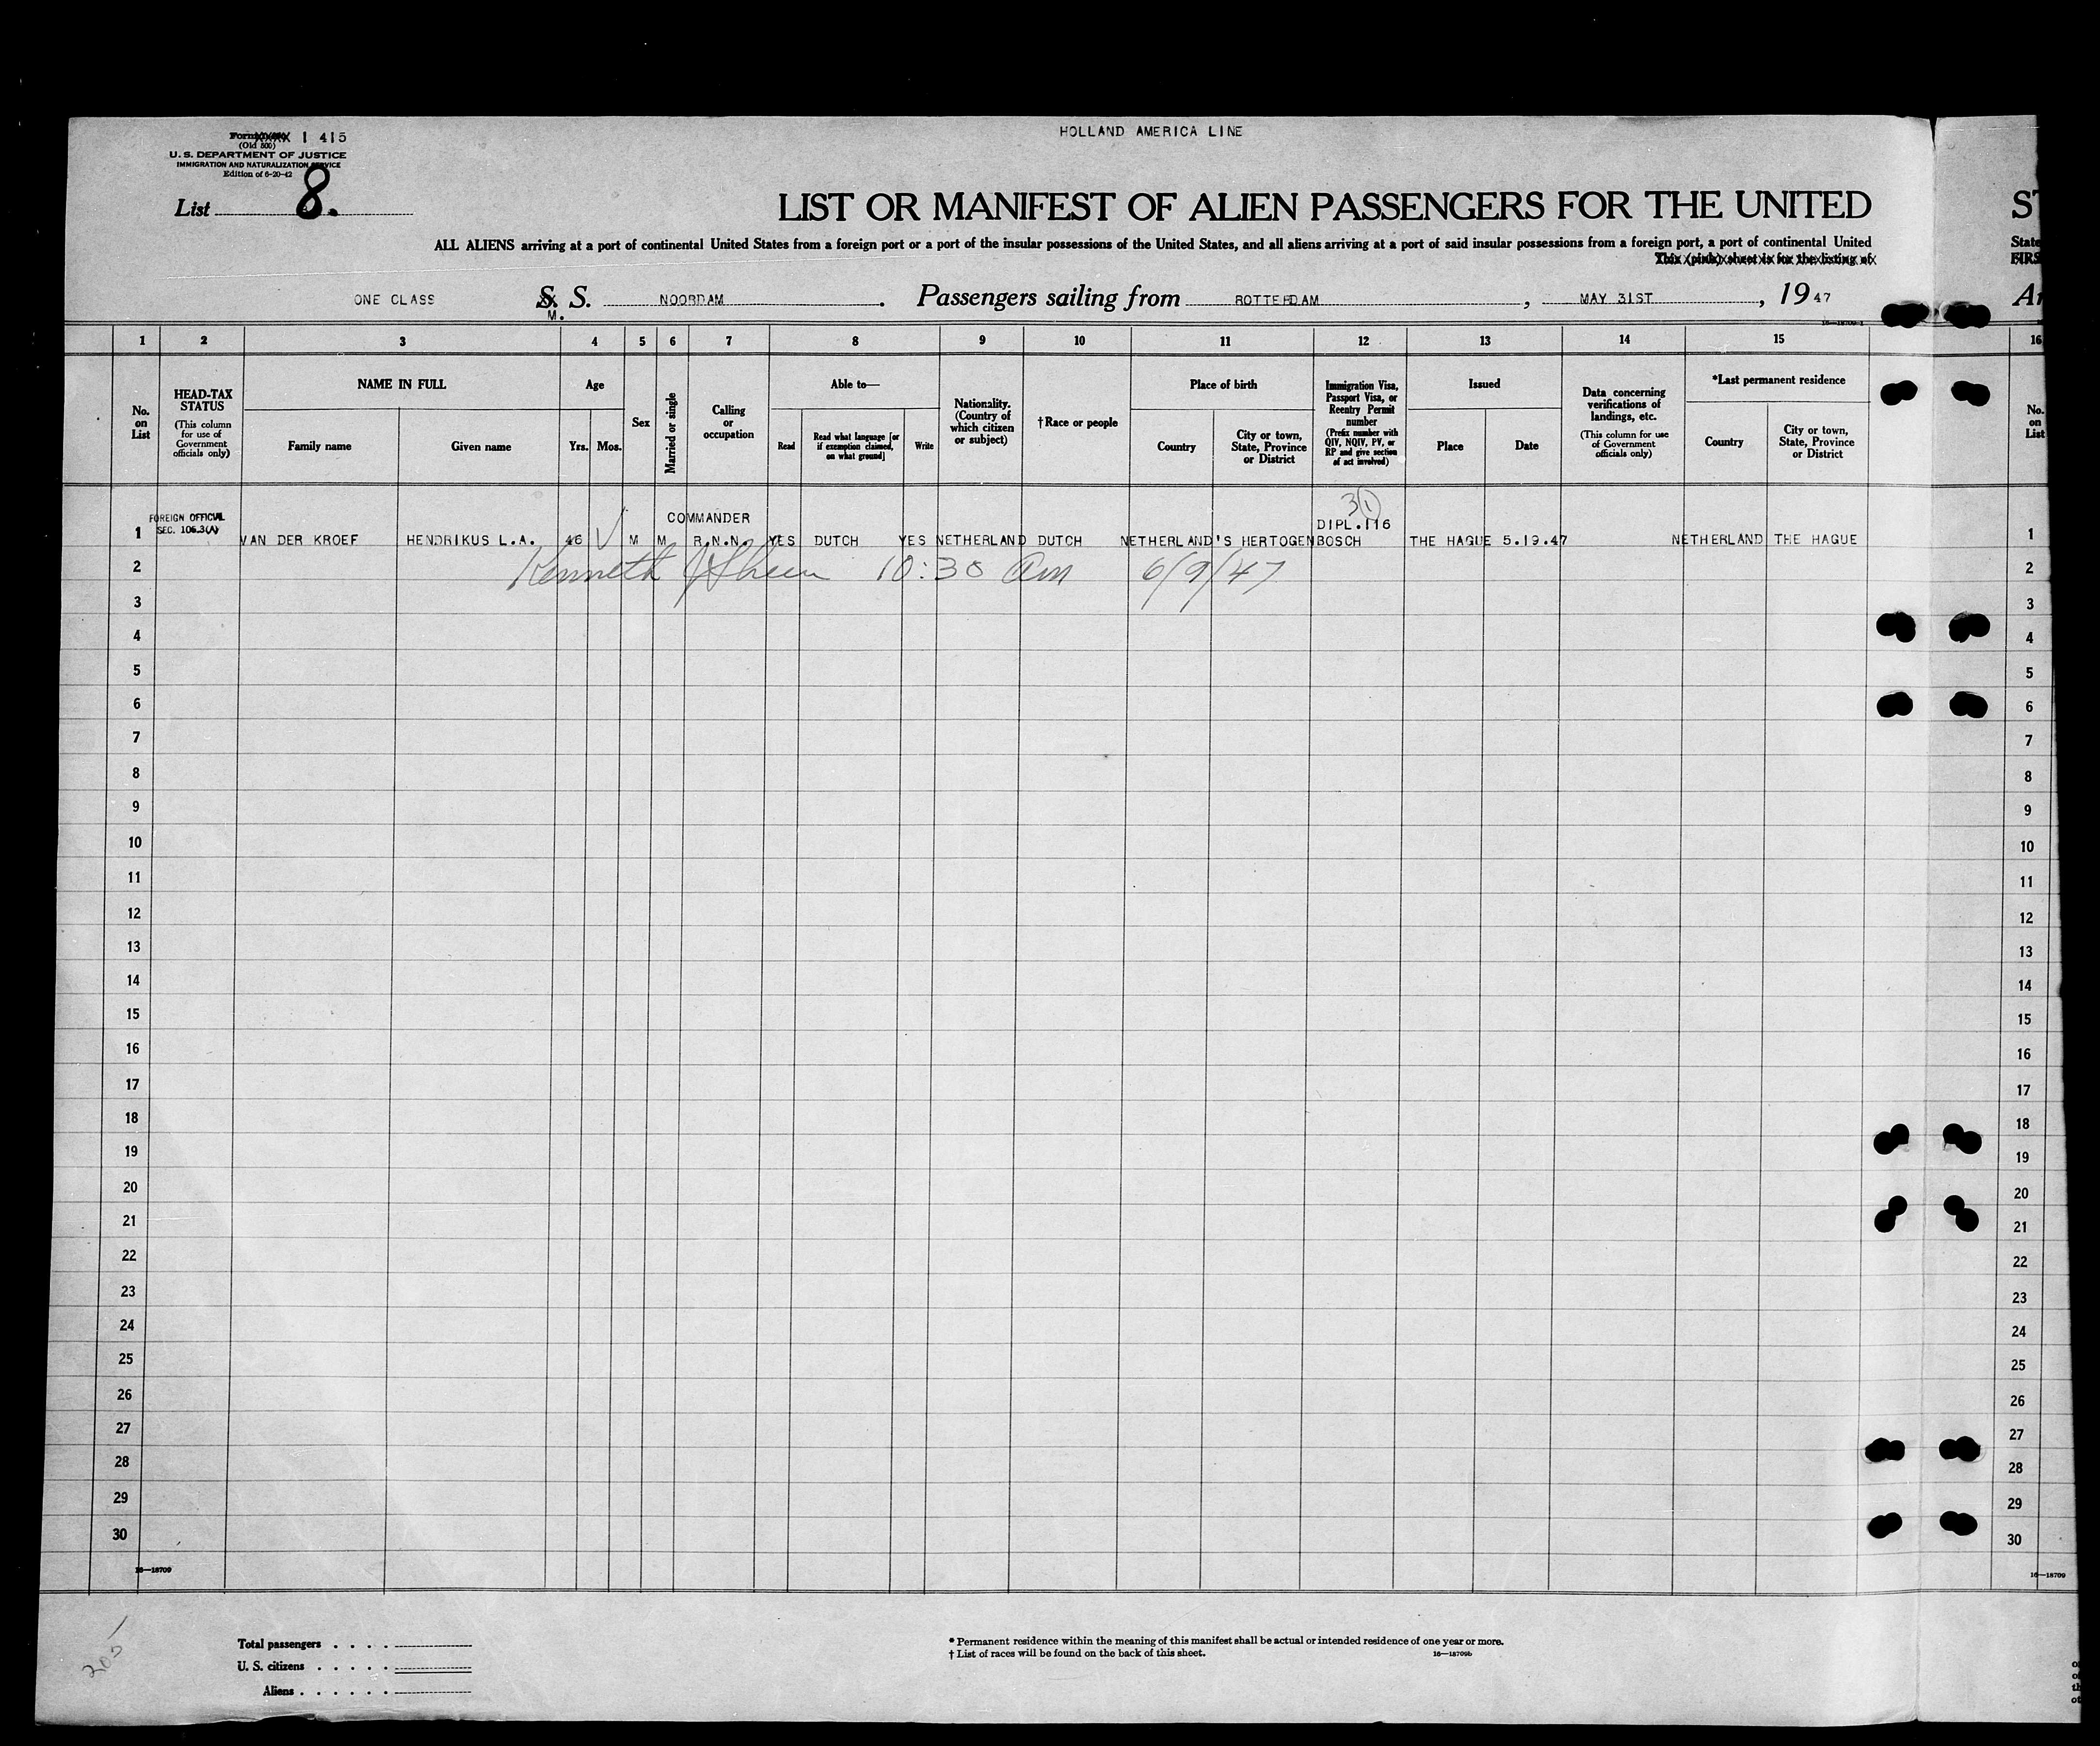 HOLLAND AMERICA LINE
Form I 415
(Old 500)
U. S. DEPARTMENT OF JUSTICE
IMMIGRATION AND NATURALIZATION SERVICE
Edition of 6-20-42
List 8.
LIST OR MANIFEST OF ALIEN PASSENGERS FOR THE UNITED
ST
ALL ALIENS arriving at a port of continental United States from a foreign port or a port of the insular possessions of the United States, and all aliens arriving at a port of said insular possessions from a foreign port, a port of continental United
State
This (pink) sheet is for the listing of
FIRS
ONE CLASS S. S. NOORDAM. Passengers sailing from ROTTERDAM, MAY 31ST, 19 47
M.
1 2 3 4 5 6 7 8 9 10 11 12 13 14 15 16
No. on List
HEAD-TAX STATUS
(This column for use of Government officials only)
NAME IN FULL
Family name Given name
Age
Yrs. Mos.
Sex
Married or single
Calling or occupation
Able to—
Read
Read what language [or if exemption claimed, on what ground]
Write
Nationality. (Country of which citizen or subject)
†Race or people
Place of birth
Country
City or town, State, Province or District
Immigration Visa, Passport Visa, or Reentry Permit number
(Prefix number with QIV, NQIV, PV, or RP and give section of act involved)
Issued
Place Date
Data concerning verifications of landings, etc.
(This column for use of Government officials only)
*Last permanent residence
Country
City or town, State, Province or District
No. on List
3 (1)
FOREIGN OFFICIAL
SEC. 106.3(A)
COMMANDER
DIPL.116
1 VAN DER KROEF HENDRIKUS L.A. 46 √ M M R.N.N. YES DUTCH YES NETHERLAND DUTCH NETHERLAND'S HERTOGENBOSCH THE HAGUE 5.19.47 NETHERLAND THE HAGUE 1
2 Kenneth 10:30 Am 6/9/47 2
3 3
4 4
5 5
6 6
7 7
8 8
9 9
10 10
11 11
12 12
13 13
14 14
15 15
16 16
17 17
18 18
19 19
20 20
21 21
22 22
23 23
24 24
25 25
26 26
27 27
28 28
29 29
30 30
16—18709 16—18709
205
Total passengers
U. S. citizens
Aliens
* Permanent residence within the meaning of this manifest shall be actual or intended residence of one year or more.
† List of races will be found on the back of this sheet.
16—18709b